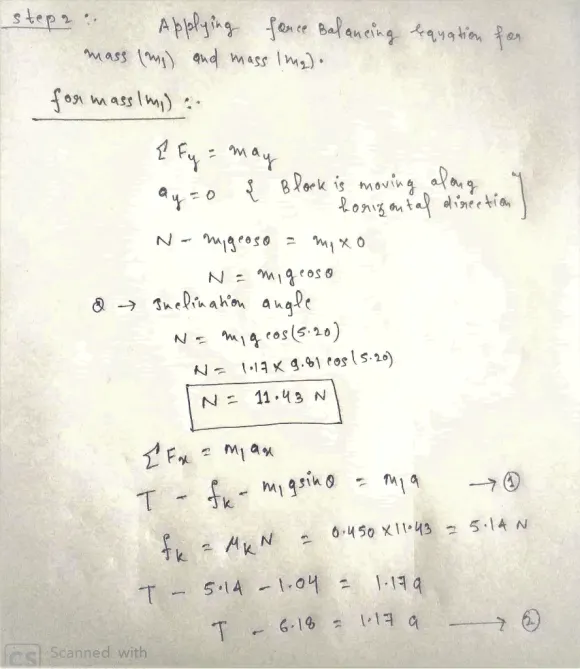 step 2 :.
Applying force Balancing Equation for
mass (m₁) and mass (m₂).
for mass (m₁) :.
Σ Fy = may
ay = 0 { Block is moving along
horizontal direction }
N - m₁gcosθ = m₁ x 0
N = m₁gcosθ
θ → Inclination angle
N = m₁g cos(5.20)
N = 1.17 x 9.81 cos(5.20)
N = 11.43 N
Σ Fx = m₁ax
T - fk - m₁gsinθ = m₁a → ①
fk = μkN = 0.450 x 11.43 = 5.14 N
T - 5.14 - 1.04 = 1.17a
T - 6.18 = 1.17 a → ②
CS Scanned with